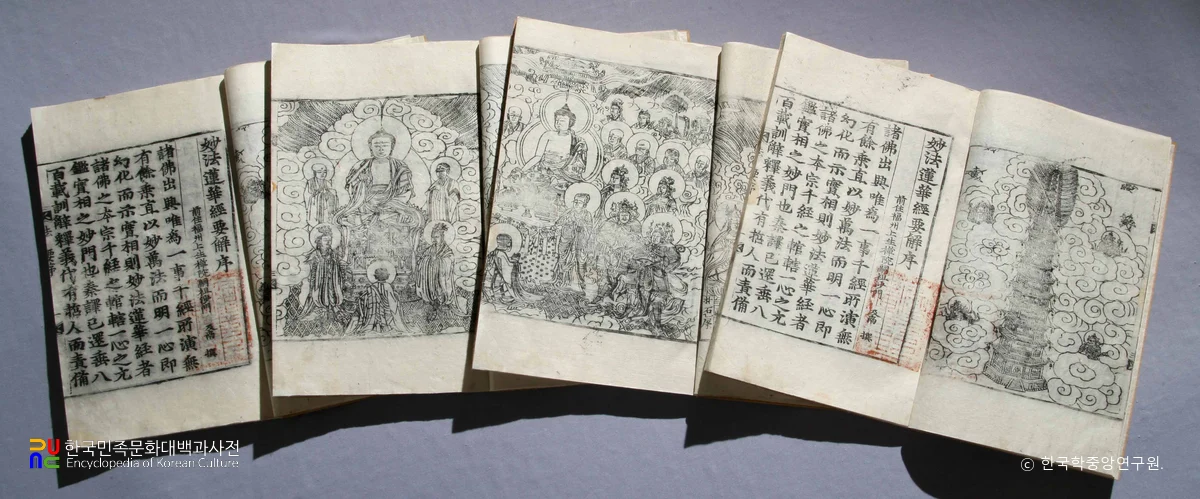 妙法蓮華經要解序
前住福州上生禪院嗣祖沙門 及南 撰
諸佛出興唯為一事千經所演無
有餘乘直以妙萬法而明一心即
幻化而示實相則妙法蓮華經者
諸佛之本宗千經之輨轄一心之
鑑實相之妙門也秦譯已還垂八
百載訓釋義代有哲人而責備
妙法蓮華經要解序
諸佛出興唯為一事千經所演無
有餘乘直以妙萬法而明一心即
幻化而示實相則妙法蓮華經者
諸佛之本宗千經之輨轄一心之
鑑實相之妙門也秦譯已還垂八
百載訓釋義代有哲人而責備
한국민족문화대백과사전
Encyclopedia of Korean Culture
© 한국학중앙연구원.